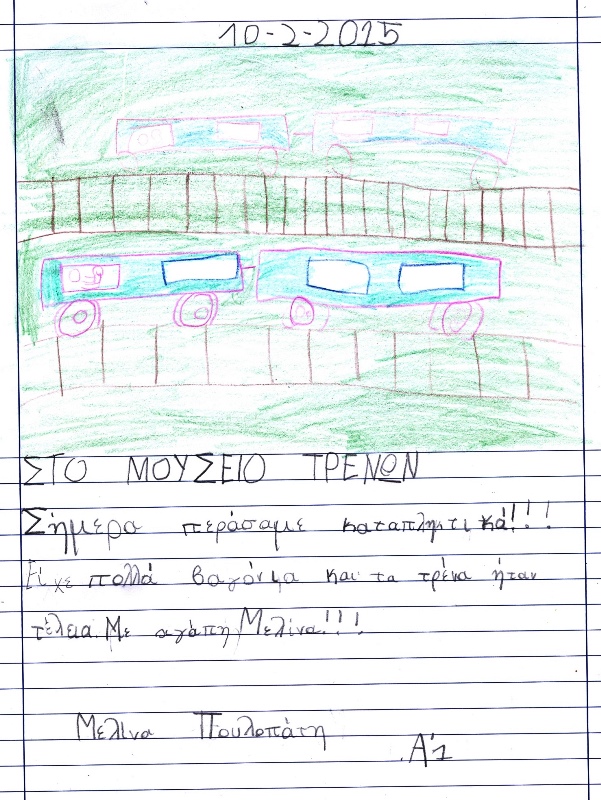 10-2-2015
ΣΤΟ ΜΟΥΣΕΙΟ ΤΡΕΝΩΝ
Σήμερα περάσαμε καταπληκτικά!!!
Είχε πολλά βαγόνια και τα τρένα ήταν
τέλεια. Με αγάπη Μελίνα!!!
Μελίνα Πουλοπάτη
Α'1